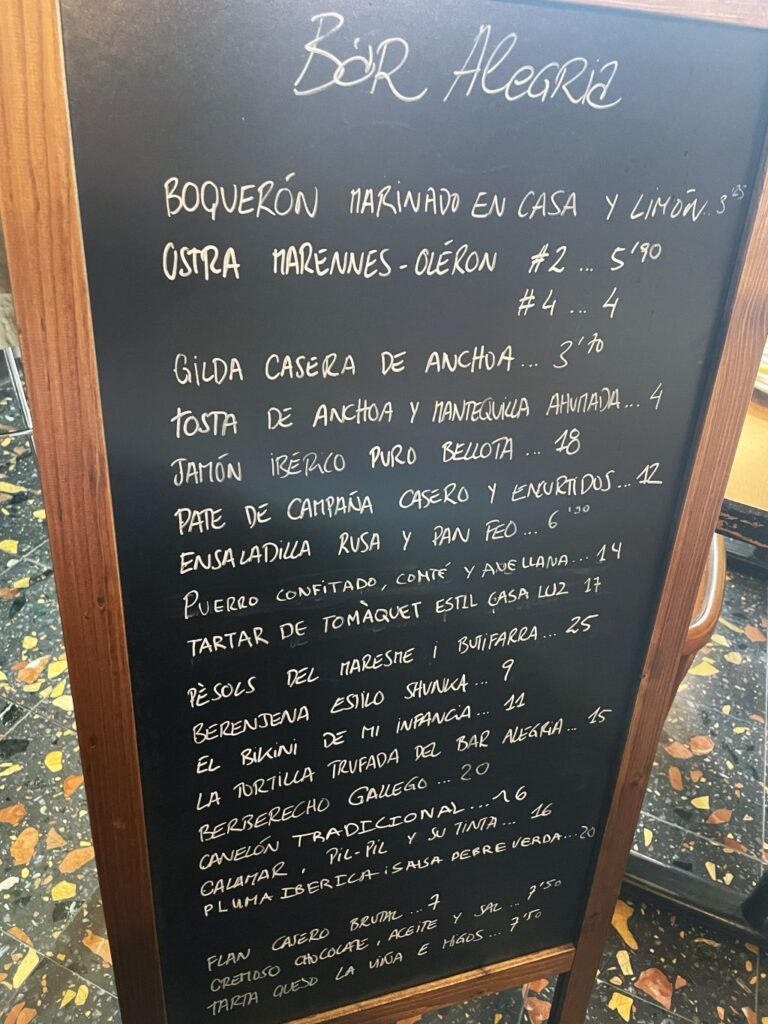 BAR ALEGRIA
BOQUERÓN MARINADO EN CASA Y LIMÓN.. 3'25
OSTRA MARENNES-OLÉRON #2 ... 5'90
#4 ... 4
GILDA CASERA DE ANCHOA... 3'70
TOSTA DE ANCHOA Y MANTEQUILLA AHUMADA... 4
JAMÓN IBÉRICO PURO BELLOTA ... 18
PATE DE CAMPAÑA CASERO Y ENCURTIDOS... 12
ENSALADILLA RUSA Y PAN FEO ... 6'90
PUERRO CONFITADO, COMTÉ Y AVELLANA... 14
TARTAR DE TOMÀQUET ESTIL CASA LUZ 17
PÈSOLS DEL MARESME I BUTIFARRA... 25
BERENJENA ESTILO SHUNKA ... 9
EL BIKINI DE MI INFANCIA ... 11
LA TORTILLA TRUFADA DEL BAR ALEGRIA... 15
BERBERECHO GALLEGO ... 20
CANELÓN TRADICIONAL ... 16
CALAMAR, PIL-PIL Y SU TINTA ... 16
PLUMA IBERICA i SALSA PEBRE VERDA... 20
FLAN CASERO BRUTAL ... 7
CREMOSO CHOCOLATE, ACEITE Y SAL ... 7'50
TARTA QUESO LA VIÑA E HIGOS ... 7'50